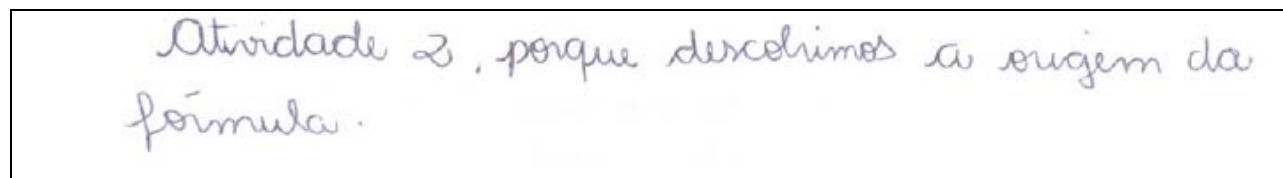 Atividade 2, porque descobrimos a origem da
fórmula.